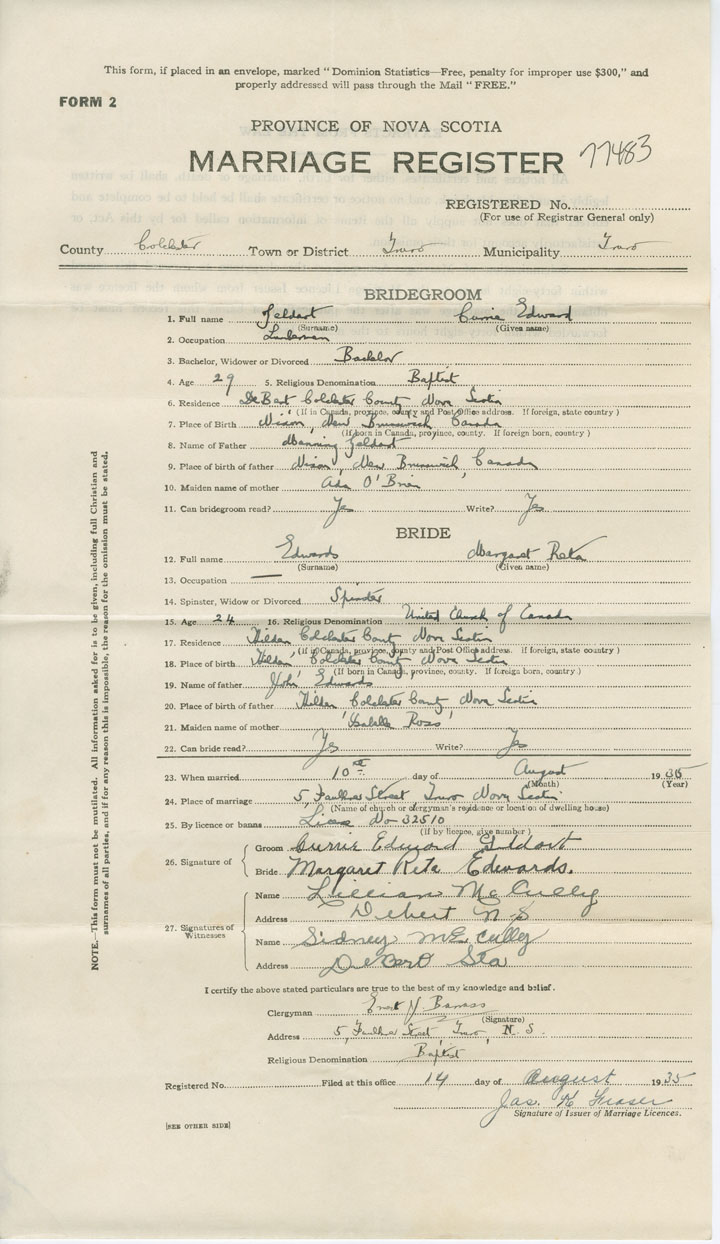 This form, if placed in an envelope, marked "Dominion Statistics—Free, penalty for improper use $300," and
properly addressed will pass through the Mail "FREE."
FORM 2
PROVINCE OF NOVA SCOTIA
MARRIAGE REGISTER 77483
REGISTERED No.
(For use of Registrar General only)
County Colchester Town or District Truro Municipality Truro
BRIDEGROOM
1. Full name Geldart Currie Edward
(Surname) (Given name)
2. Occupation Lumberman
3. Bachelor, Widower or Divorced Bachelor
4. Age 29 5. Religious Denomination Baptist
6. Residence DeBert Colchester County Nova Scotia
(If in Canada, province, county and Post Office address. If foreign, state country)
7. Place of Birth Nixon, New Brunswick, Canada
(If born in Canada, province, county. If foreign born, country)
8. Name of Father Manning Geldart
9. Place of birth of father Nixon, New Brunswick, Canada
10. Maiden name of mother Ada O'Brien
11. Can bridegroom read? Yes Write? Yes
BRIDE
12. Full name Edwards Margaret Reta
(Surname) (Given name)
13. Occupation —
14. Spinster, Widow or Divorced Spinster
15. Age 24 16. Religious Denomination United Church of Canada
17. Residence Hilden Colchester County Nova Scotia
(If in Canada, province, county and Post Office address. If foreign, state country)
18. Place of birth Hilden Colchester County Nova Scotia
(If born in Canada, province, county. If foreign born, country.)
19. Name of father John Edwards
20. Place of birth of father Hilden Colchester County Nova Scotia
21. Maiden name of mother Isabelle Ross
22. Can bride read? Yes Write? Yes
23. When married 10th day of August 1935
(Month) (Year)
24. Place of marriage 5, Faulkner Street Truro Nova Scotia
(Name of church or clergyman's residence or location of dwelling house)
25. By licence or banns Lice No 32510
(If by licence, give number)
26. Signature of
Groom Currie Edward Geldart
Bride Margaret Reta Edwards.
27. Signatures of Witnesses
Name Lillian McCully
Address Debert N S
Name Sidney McCully
Address DeBert Sta
I certify the above stated particulars are true to the best of my knowledge and belief.
Clergyman
(Signature)
Address 5, Faulkner Street, Truro, N. S.
Religious Denomination Baptist
Registered No. Filed at this office 14 day of August 1935
Jas. Fraser
Signature of Issuer of Marriage Licences.
[SEE OTHER SIDE]
NOTE.—This form must not be mutilated. All information asked for is to be given, including full Christian and
surnames of all parties, and if for any reason this is impossible, the reason for the omission must be stated.